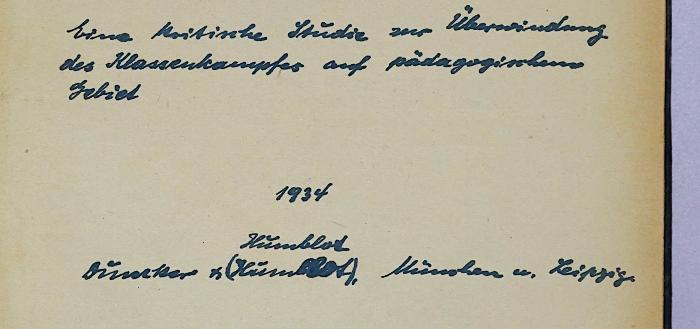 Eine kritische Studie zur Überwindung
des Klassenkampfes auf pädagogischem
Gebiet
1934
Humblot
Duncker & (Humblot), München u. Leipzig.